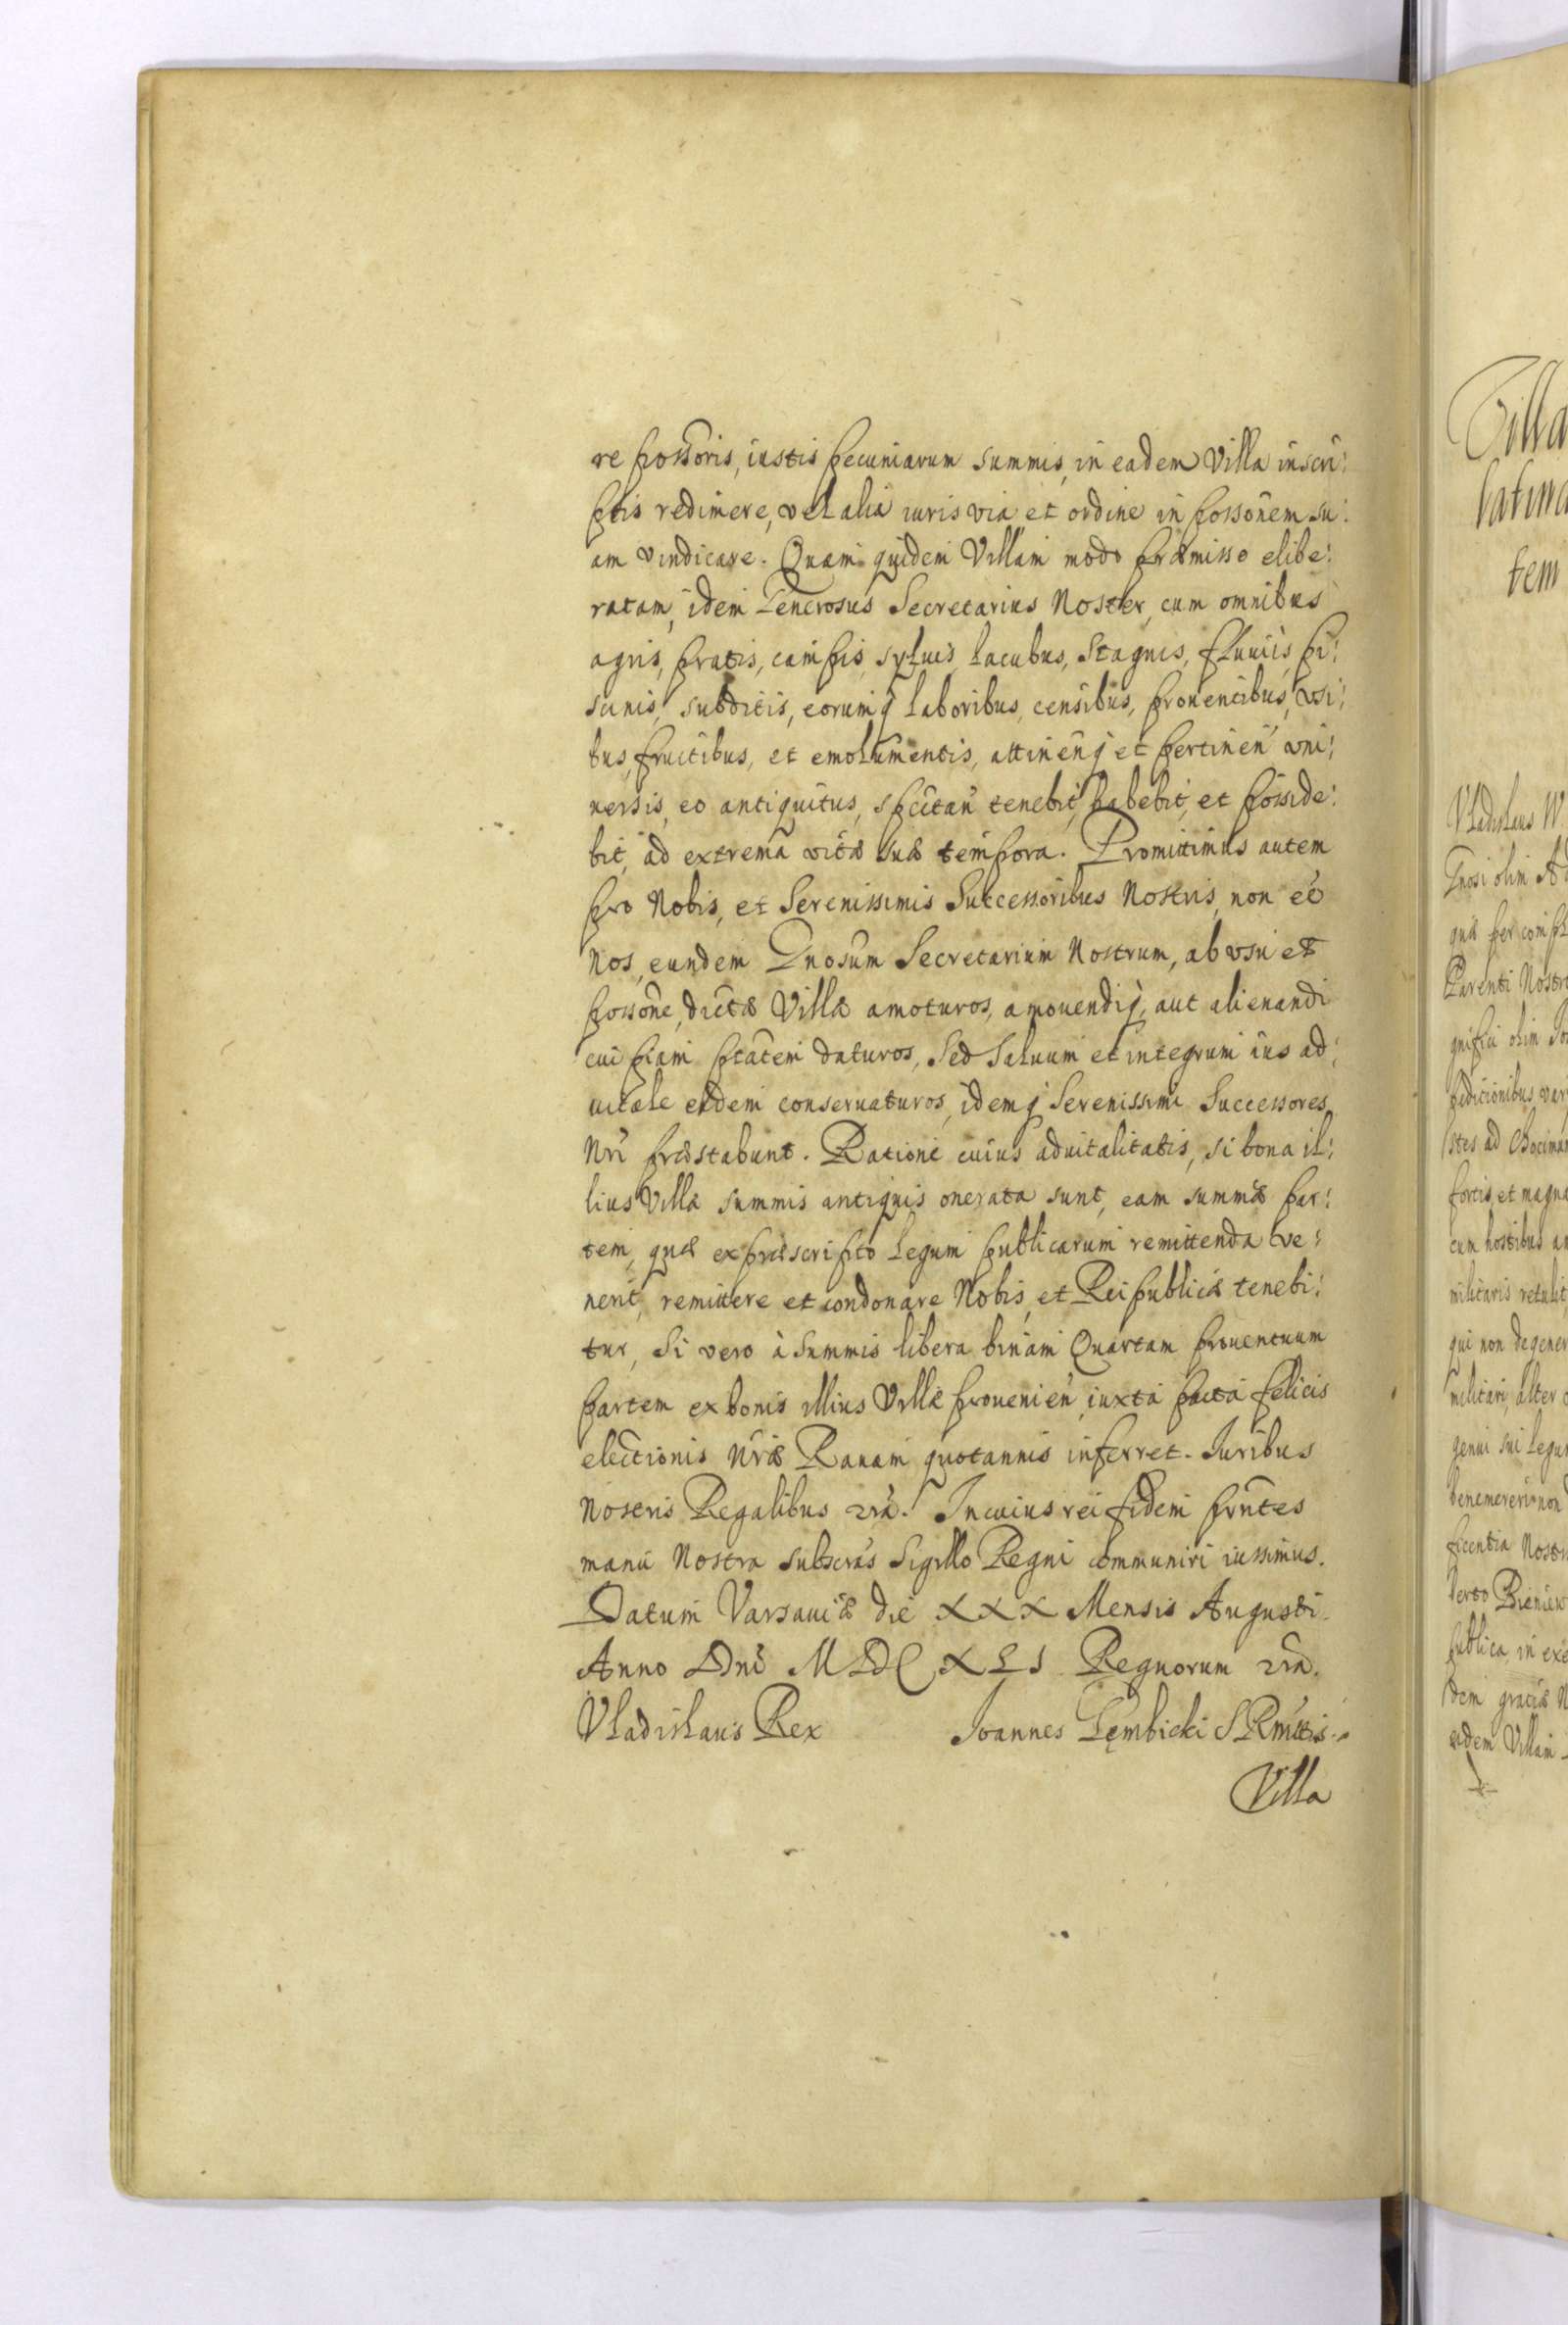 re possoris, iustis pecuniarum summis, in eadem Villa inscri:
ptis redimere, vel alia iuris via et ordine in possonem su:
am vindicare. Quam quidem Villam modo præmisso elibe:
ratam, idem Generosus Secretarius Noster, cum omnibus
agris, pratis, campis, syluis, lacubus, stagnis, fluuiis, pi:
scinis, subditis, eorumq laboribus, censibus, prouentibus, vsi:
bus, fructibus, et emolumentis, attinenq et pertinen vni:
uersis, eo antiquitus, spectan tenebit, habebit, et posside:
bit, ad extrema vitæ suæ tempora. Promittimus autem
pro Nobis, et Serenissimis Successoribus Nostris, non eo
Nos, eundem Gnosum Secretarium Nostrum, ab vsu et
possone, dictæ Villæ amoturos, amouendiq, aut alienandi
cuipiam ptatem daturos, Sed saluum et integrum ius ad:
uitale eidem conseruaturos, idemq Serenissimi Successores
Nri præstabunt. Ratione cuius aduitalitatis, si bona il:
lius Villæ summis antiquis onerata sunt, eam summæ par:
tem, quæ ex præscripto Legum publicarum remittenda ve:
nerit, remittere et condonare Nobis, et Reipublicæ tenebi:
tur, Si vero à summis libera binam Quartam prouentuum
partem ex bonis illius Villæ prouenien, iuxta pacta felicis
electionis Nræ Rauam quotannis inferret. Iuribus
Nostris Regalibus
In cuius rei fidem prntes
manu Nostra subscras Sigillo Regni communiri iussimus.
Datum Varsauiæ die XXX Mensis Augusti
Anno Dni MDCXLI Regnorum
Vladislaus Rex Ioannes Gembicki S R
Villa
Villa
latina
tem
Vladislaus
Gnosi olim
quæ per
Parenti Nostr
olim
peditionibus var
stes ad Chocim
fortis, et magn
cum hostibus an
militaris retulit
qui non degener
militari, alter
genui sui Legu
benemereri non
ficentia Nostr
publica, in exe
dem gratiæ N
eadem Villam